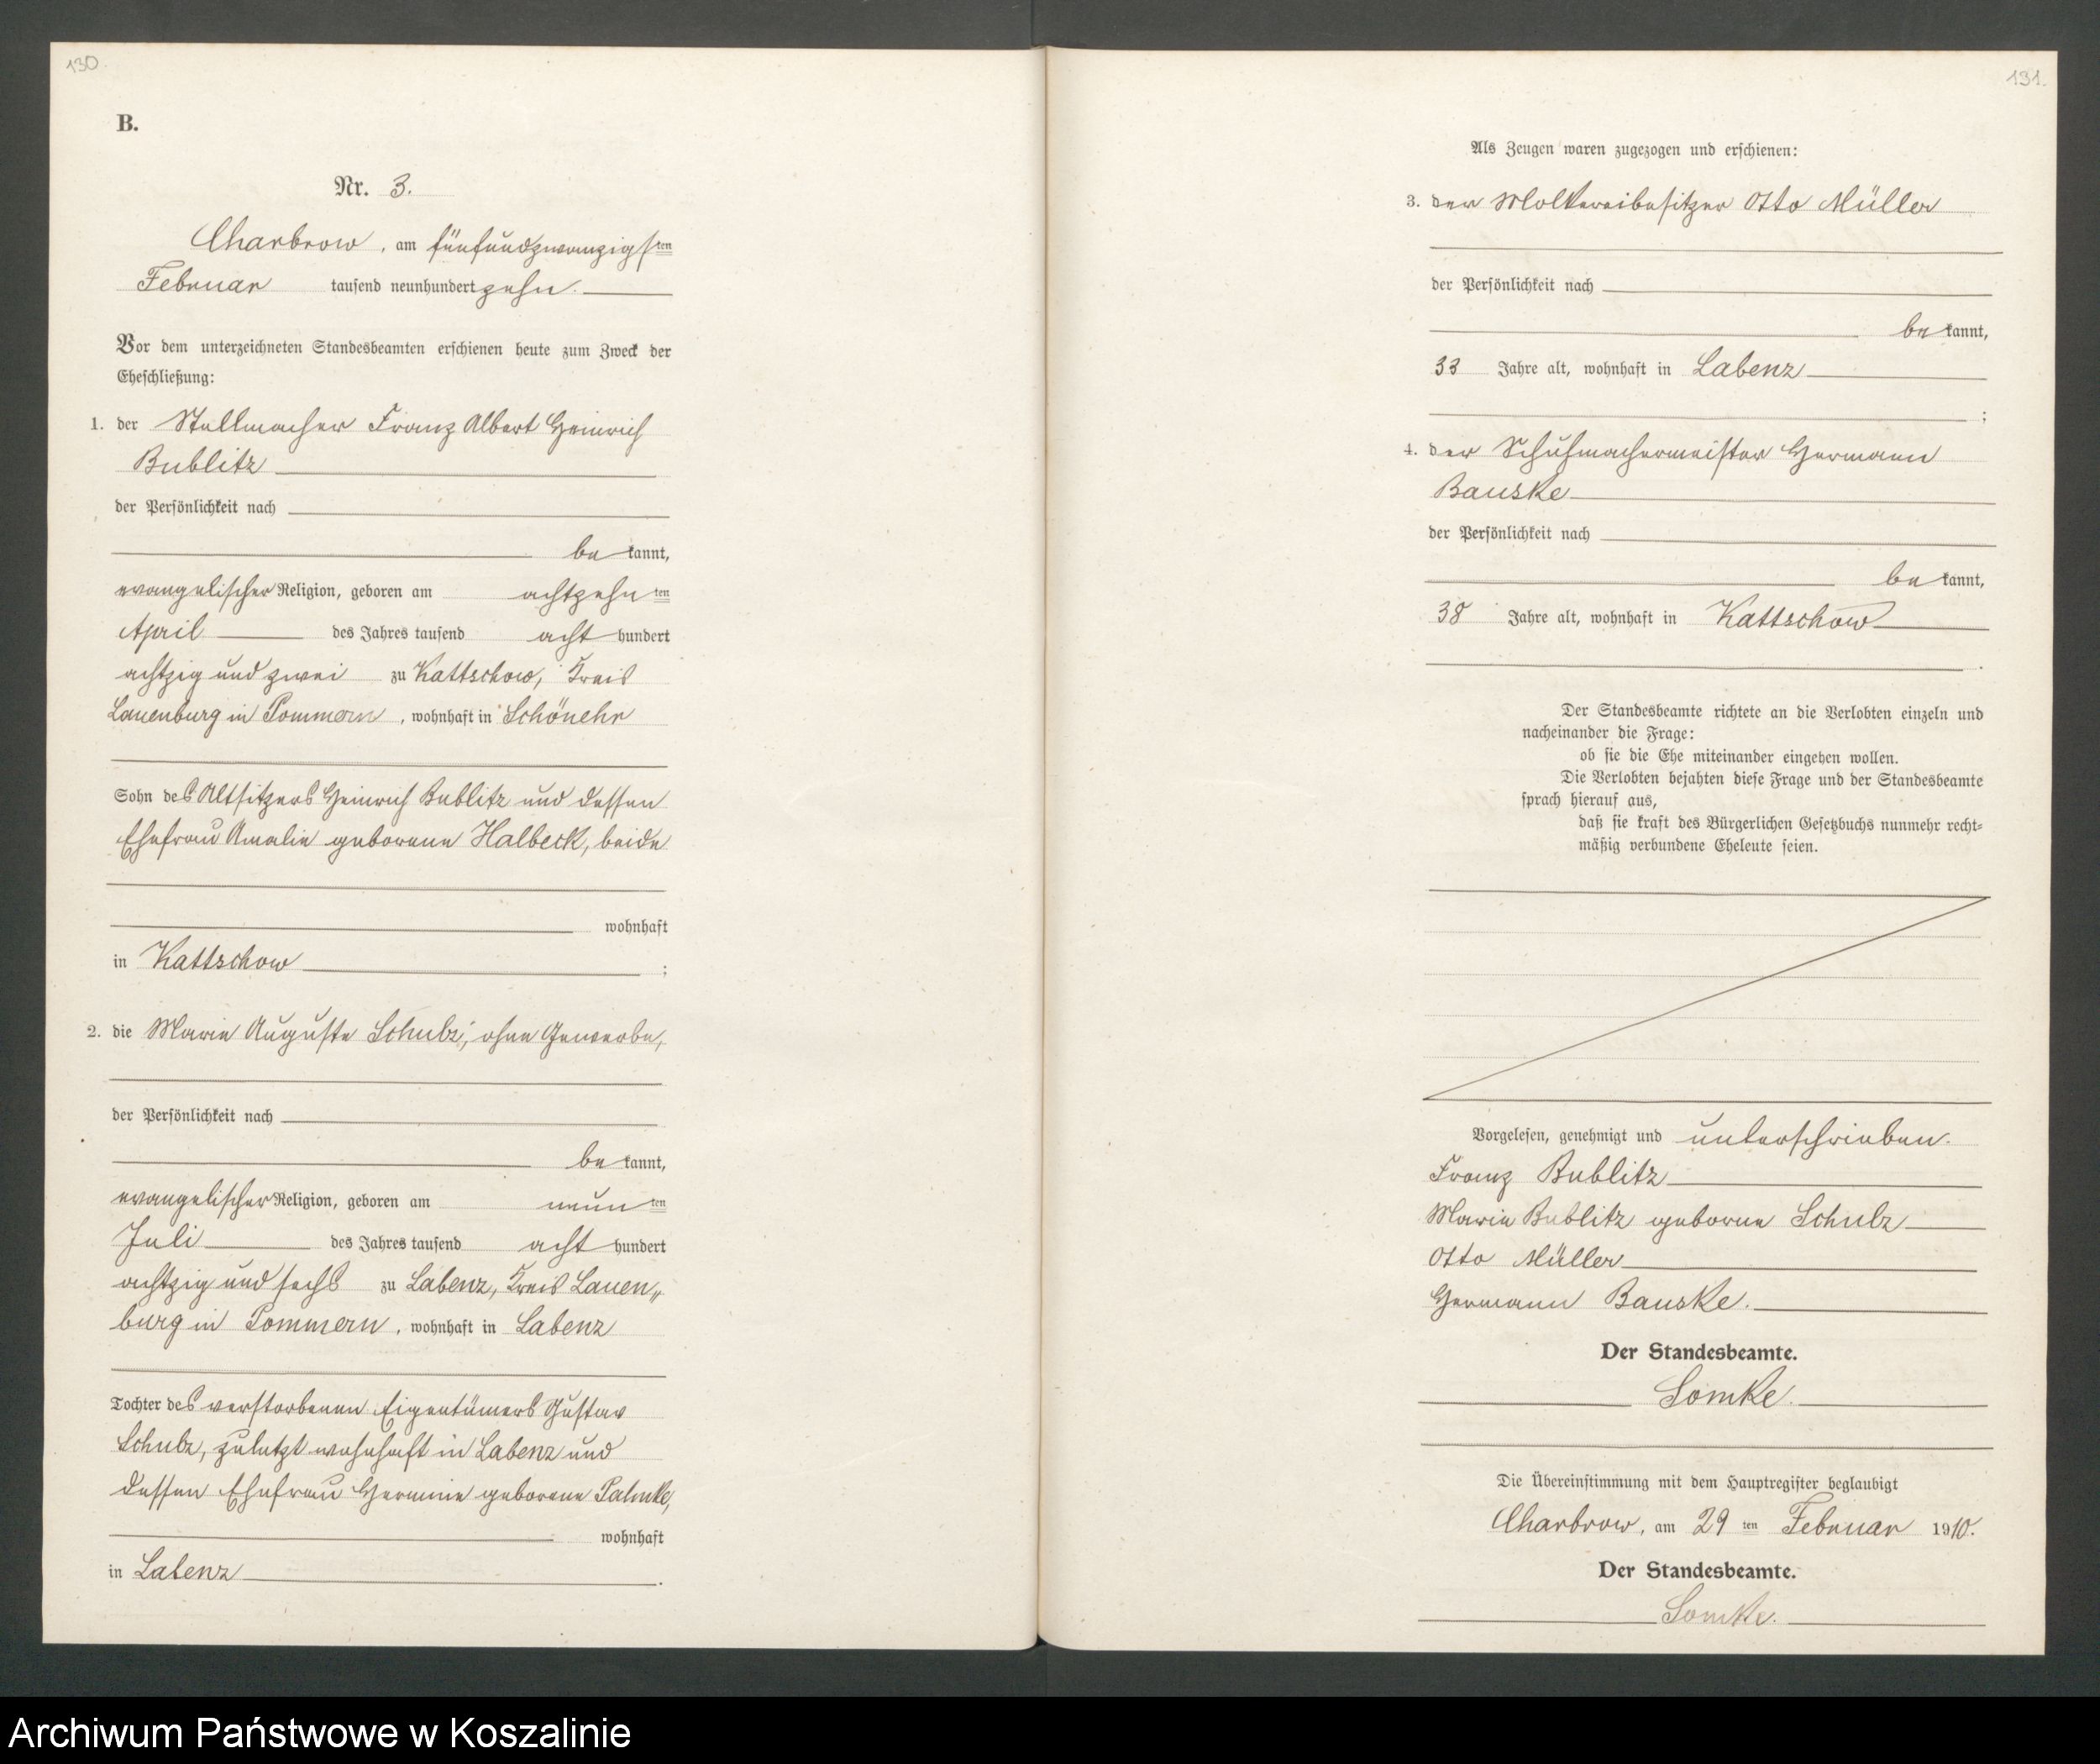 130.
B.
Nr. 3.
Charbrow, am fünfundzwanzigsten
Februar tausend neunhundert zehn.
Vor dem unterzeichneten Standesbeamten erschienen heute zum Zweck der
Eheschließung:
1. der Stellmacher Franz Albert Heinrich
Bublitz
der Persönlichkeit nach
be kannt,
evangelischer Religion, geboren am achtzehn ten
April des Jahres tausend acht hundert
achtzig und zwei zu Kattschow, Kreis
Lauenburg in Pommern, wohnhaft in Schönehr
Sohn des Altsitzers Heinrich Bublitz und dessen
Ehefrau Amalie geborene Halbeck, beide
wohnhaft
in Kattschow ;
2. die Marie Auguste Schulz, ohne Gewerbe,
der Persönlichkeit nach
be kannt,
evangelischer Religion, geboren am neun ten
Juli des Jahres tausend acht hundert
achtzig und sechs zu Labenz, Kreis Lauen„
burg in Pommern, wohnhaft in Labenz
Tochter des verstorbenen Eigentümers Gustav
Schulz, zuletzt wohnhaft in Labenz und
dessen Ehefrau Hermine geborene
wohnhaft
in Labenz .
131.
Als Zeugen waren zugezogen und erschienen:
3. der Molkereibesitzer Otto Müller
der Persönlichkeit nach
be kannt,
33 Jahre alt, wohnhaft in Labenz
;
4. der Schuhmachermeister Hermann
Bauske
der Persönlichkeit nach
be kannt,
38 Jahre alt, wohnhaft in Kattschow
.
Der Standesbeamte richtete an die Verlobten einzeln und
nacheinander die Frage:
ob sie die Ehe miteinander eingehen wollen.
Die Verlobten bejahten diese Frage und der Standesbeamte
sprach hierauf aus,
daß sie kraft des Bürgerlichen Gesetzbuchs nunmehr recht-
mäßig verbundene Eheleute seien.
Vorgelesen, genehmigt und unterschrieben.
Franz Bublitz
Marie Bublitz geborne Schulz
Otto Müller
Hermann Bauske.
Der Standesbeamte.
Lomke.
Die Übereinstimmung mit dem Hauptregister beglaubigt
Charbrow, am 29 ten Februar 1910.
Der Standesbeamte.
Lomke.
Archiwum Państwowe w Koszalinie